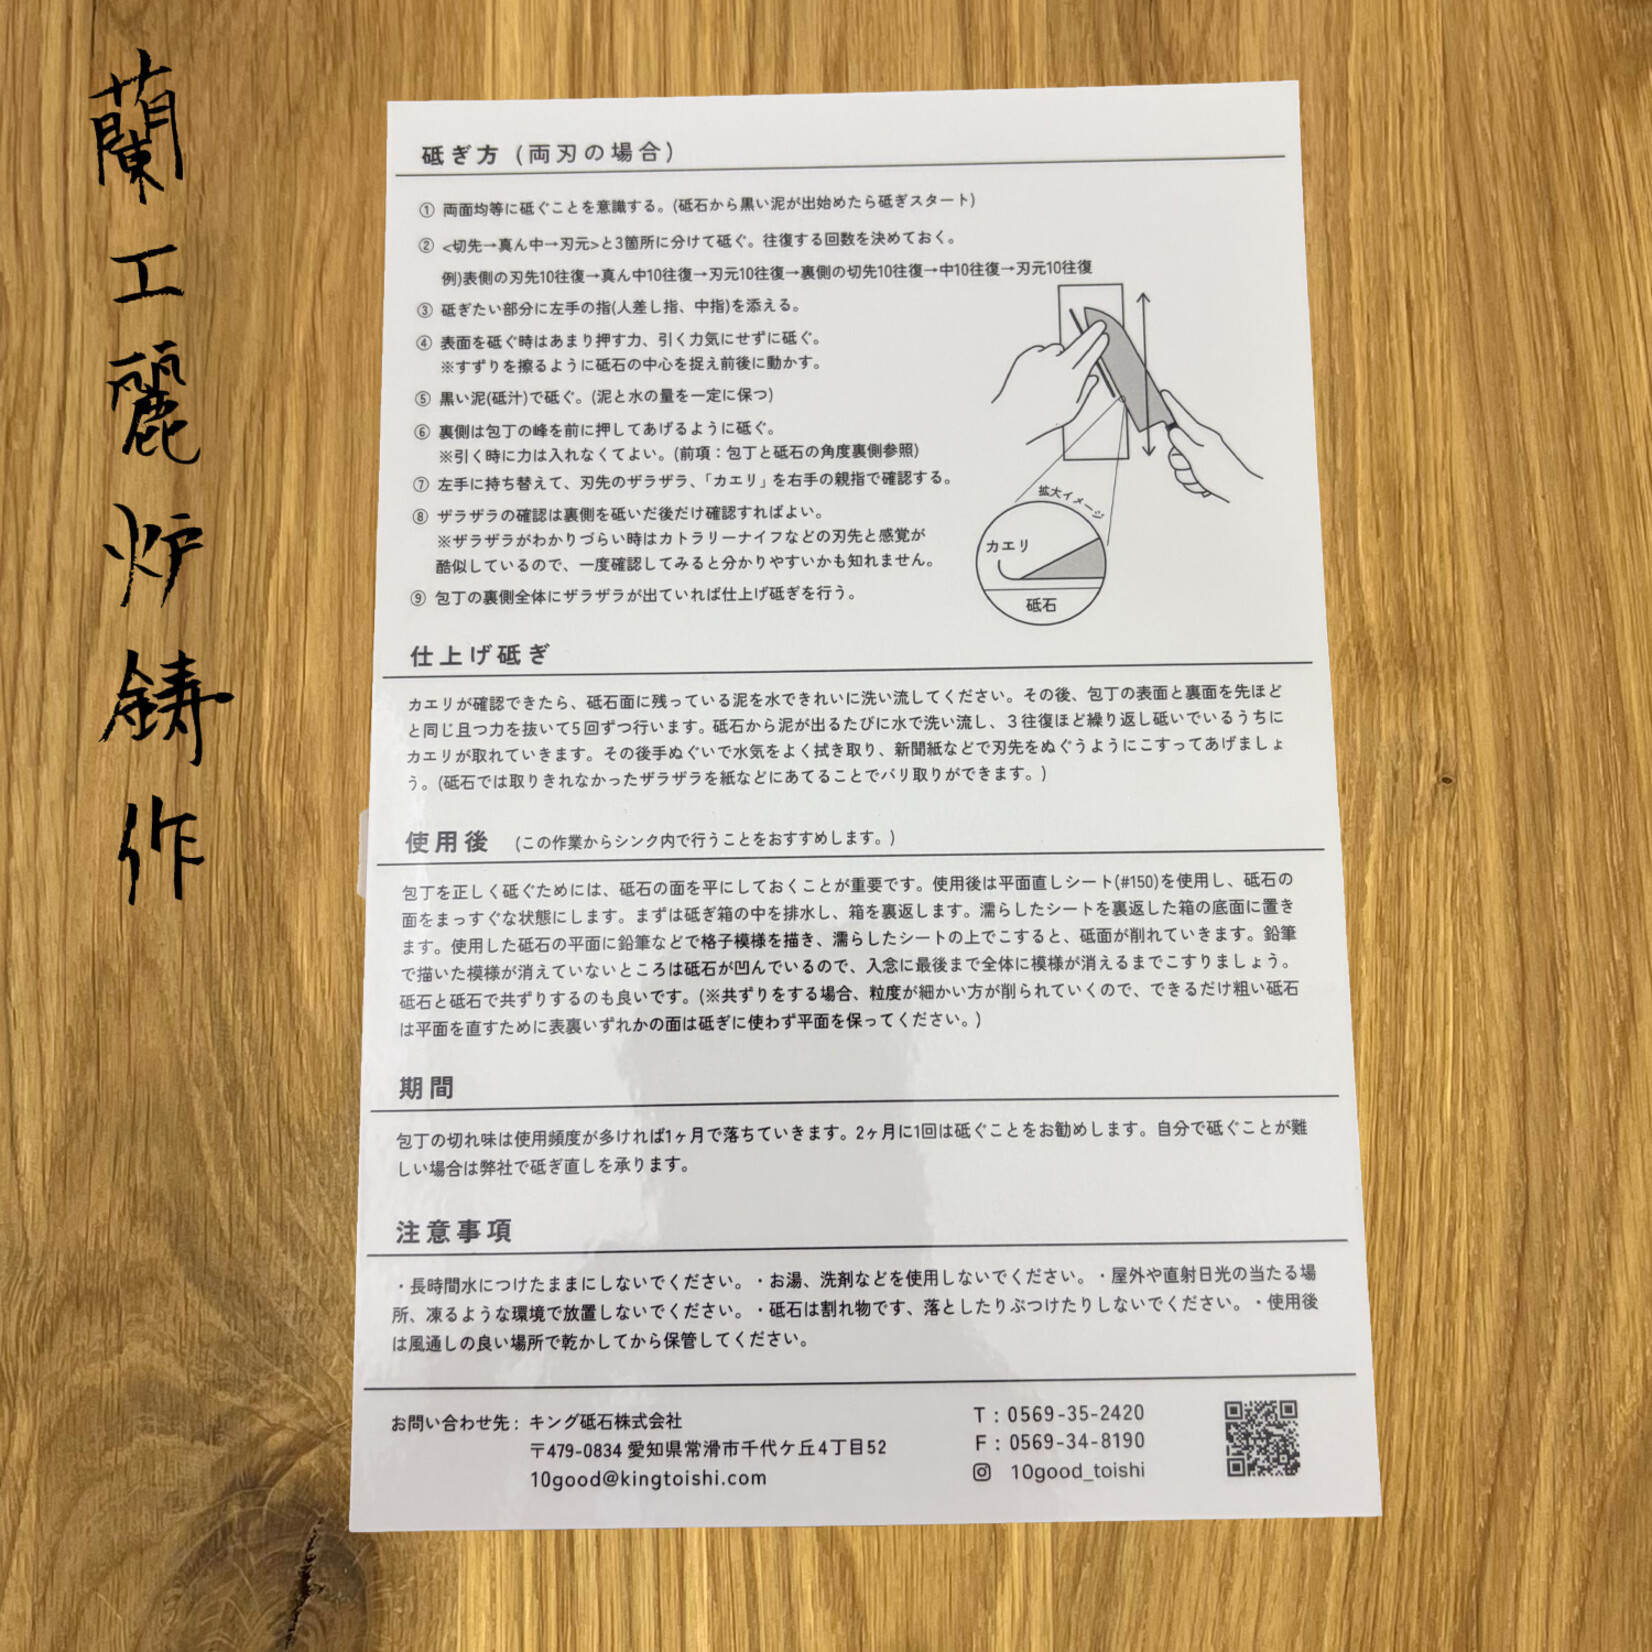 蘭工麗炉鋳作
砥ぎ方 (両刃の場合)
① 両面均等に砥ぐことを意識する。(砥石から黒い泥が出始めたら砥ぎスタート)
② <切先→真ん中→刃元>と3箇所に分けて砥ぐ。往復する回数を決めておく。
例)表側の刃先10往復→真ん中10往復→刃元10往復→裏側の切先10往復→中10往復→刃元10往復
③ 砥ぎたい部分に左手の指(人差し指、中指)を添える。
④ 表面を砥ぐ時はあまり押す力、引く力気にせずに砥ぐ。
※すずりを擦るように砥石の中心を捉え前後に動かす。
⑤ 黒い泥(砥汁)で砥ぐ。(泥と水の量を一定に保つ)
⑥ 裏側は包丁の峰を前に押してあげるように砥ぐ。
※引く時に力は入れなくてよい。(前項：包丁と砥石の角度裏側参照)
⑦ 左手に持ち替えて、刃先のザラザラ、「カエリ」を右手の親指で確認する。
⑧ ザラザラの確認は裏側を砥いだ後だけ確認すればよい。
※ザラザラがわかりづらい時はカトラリーナイフなどの刃先と感覚が
酷似しているので、一度確認してみると分かりやすいかも知れません。
⑨ 包丁の裏側全体にザラザラが出ていれば仕上げ砥ぎを行う。
拡大イメージ
カエリ
砥石
仕上げ砥ぎ
カエリが確認できたら、砥石面に残っている泥を水できれいに洗い流してください。その後、包丁の表面と裏面を先ほど
と同じ且つ力を抜いて5回ずつ行います。砥石から泥が出るたびに水で洗い流し、3往復ほど繰り返し砥いでいるうちに
カエリが取れていきます。その後手ぬぐいで水気をよく拭き取り、新聞紙などで刃先をぬぐうようにこすってあげましょ
う。(砥石では取りきれなかったザラザラを紙などにあてることでバリ取りができます。)
使用後 (この作業からシンク内で行うことをおすすめします。)
包丁を正しく砥ぐためには、砥石の面を平にしておくことが重要です。使用後は平面直しシート(#150)を使用し、砥石の
面をまっすぐな状態にします。まずは砥ぎ箱の中を排水し、箱を裏返します。濡らしたシートを裏返した箱の底面に置き
ます。使用した砥石の平面に鉛筆などで格子模様を描き、濡らしたシートの上でこすると、砥面が削れていきます。鉛筆
で描いた模様が消えていないところは砥石が凹んでいるので、入念に最後まで全体に模様が消えるまでこすりましょう。
砥石と砥石で共ずりするのも良いです。(※共ずりをする場合、粒度が細かい方が削られていくので、できるだけ粗い砥石
は平面を直すために表裏いずれかの面は砥ぎに使わず平面を保ってください。)
期間
包丁の切れ味は使用頻度が多ければ1ヶ月で落ちていきます。2ヶ月に1回は砥ぐことをお勧めします。自分で砥ぐことが難
しい場合は弊社で砥ぎ直しを承ります。
注意事項
・長時間水につけたままにしないでください。・お湯、洗剤などを使用しないでください。・屋外や直射日光の当たる場
所、凍るような環境で放置しないでください。・砥石は割れ物です、落としたりぶつけたりしないでください。・使用後
は風通しの良い場所で乾かしてから保管してください。
お問い合わせ先： キング砥石株式会社
〒479-0834 愛知県常滑市千代ケ丘4丁目52
10good@kingtoishi.com
T：0569-35-2420
F：0569-34-8190
10good_toishi